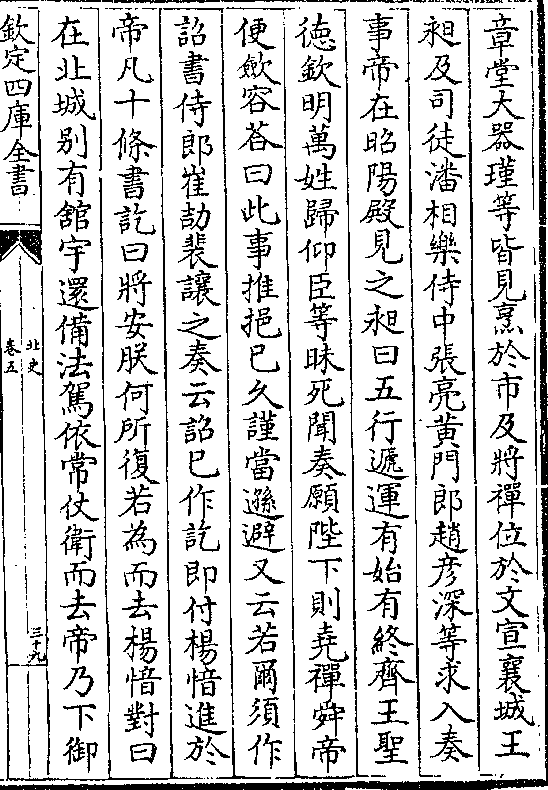 章堂大器瑾等皆見烹於市及將禪位於文宣襄城王
昶及司徒潘相樂侍中張亮黄門郎趙彦深等求入奏
事帝在昭陽殿見之昶曰五行遞運有始有終齊王聖
徳欽明萬姓歸仰臣等昧死聞奏願陛下則堯禪舜帝
便歛容荅曰此事推挹已久謹當遜避又云若爾須作
詔書侍郎崔劼裴讓之奏云詔已作訖即付楊愔進於
帝凡十條書訖曰將安朕何所復若為而去楊愔對曰
在北城别有舘宇還備法駕依常仗衛而去帝乃下御
欽定四庫全書
北史
卷五
三十九